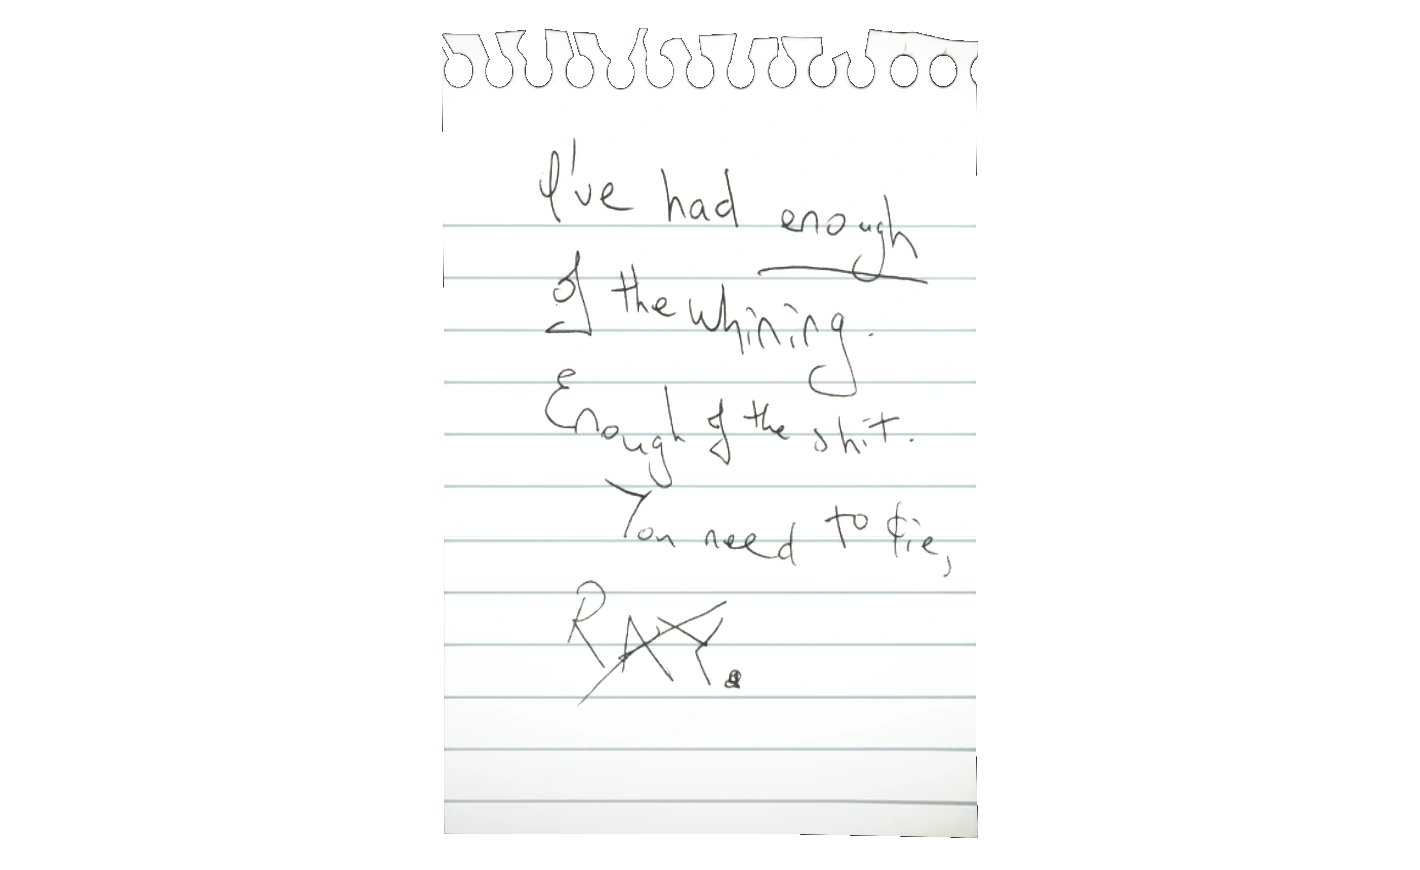 I've had enough
of the whining.
Enough of the shit.
You need to die,
RAY.